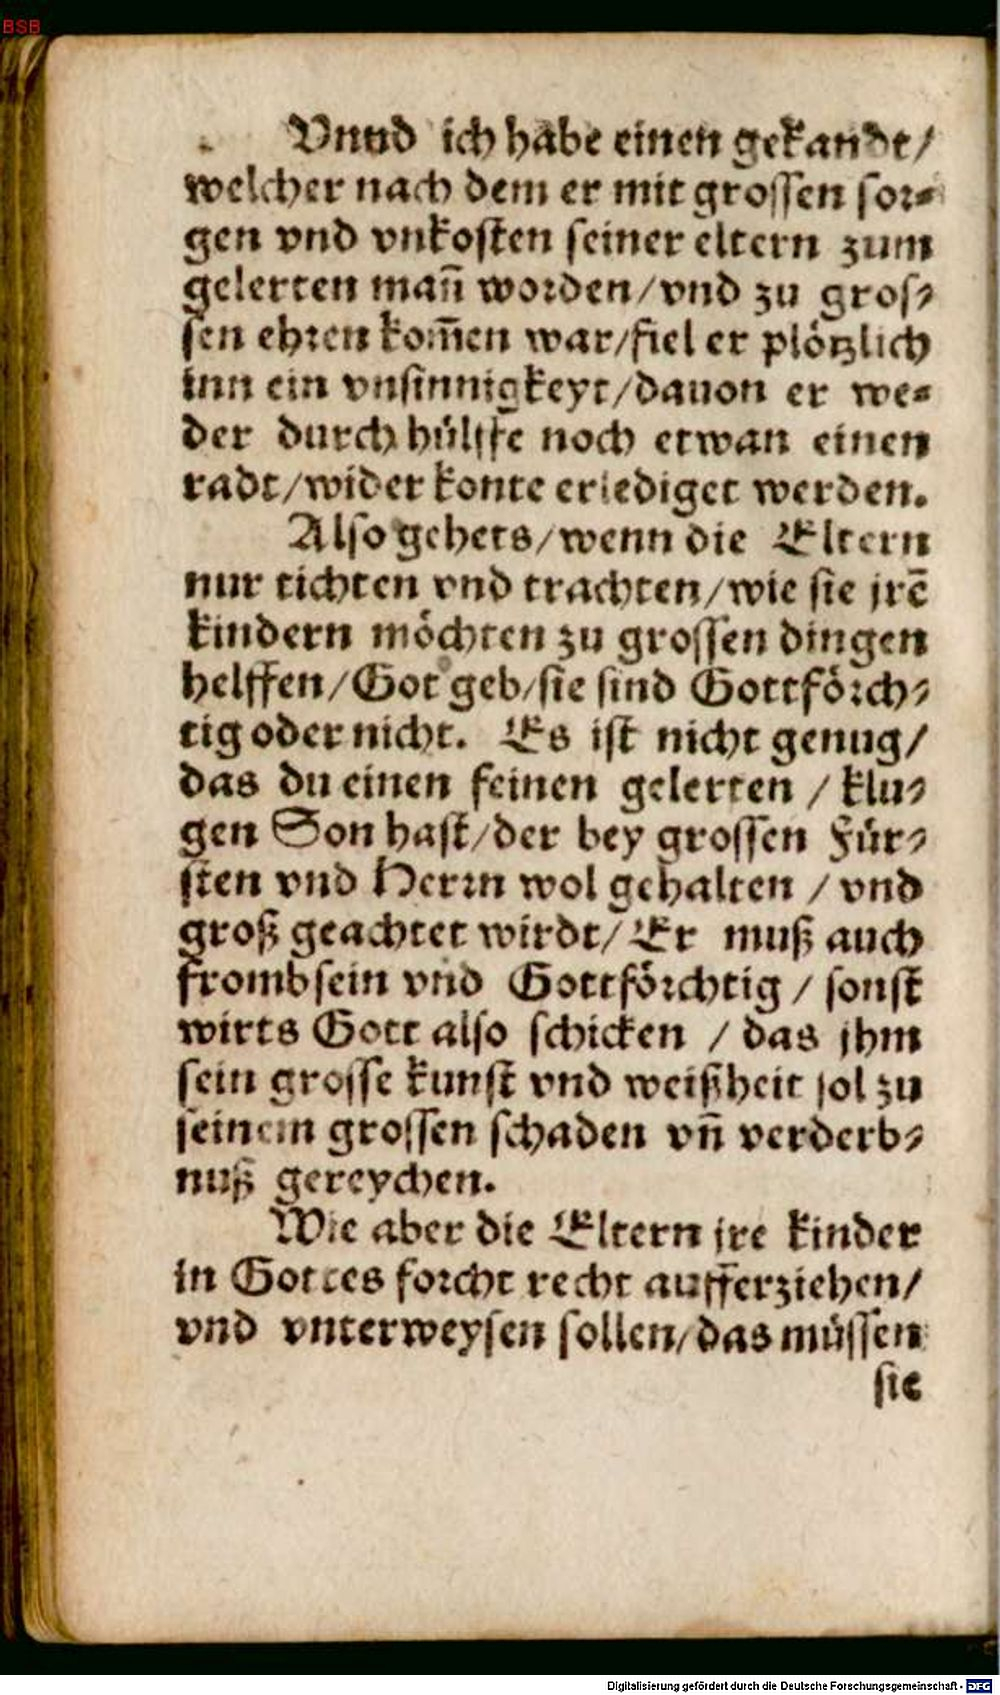 BSB
Vnnd ich habe einen gekandt/
welcher nach dem er mit grossen sor⸗
gen vnd vnkosten seiner eltern zum
gelerten mañ worden/vnd zu gros⸗
sen ehren kom̄en war/fiel er plötzlich
inn ein vnsinnigkeyt/dauon er we⸗
der durch hülffe noch etwan einen
radt/wider konte erlediget werden.
Also gehets/wenn die Eltern
nur tichten vnd trachten/wie sie jrē
kindern möchten zu grossen dingen
helffen/Got geb/sie sind Gottförch⸗
tig oder nicht. Es ist nicht genug/
das du einen feinen gelerten / klu⸗
gen Son hast/der bey grossen Für⸗
sten vnd Herrn wol gehalten / vnd
groß geachtet wirdt/ Er muß auch
fromb sein vnd Gottförchtig / sonst
wirts Gott also schicken / das jhm
sein grosse kunst vnd weißheit sol zu
seinem grossen schaden vñ verderb⸗
nuß gereychen.
Wie aber die Eltern jre kinder
in Gottes forcht recht aufferziehen/
vnd vnterweysen sollen/das müssen
sie
Digitalisierung gefördert durch die Deutsche Forschungsgemeinschaft - DFG